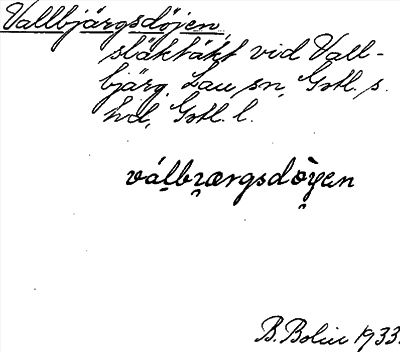 Vallbjärgsdöjen,
släktäkt vid Vall-
bjärg, Lau sn, Gotl. s.
hd, Gotl. l.
válbræ̀rgsdòyen
B. Bolin 1933.